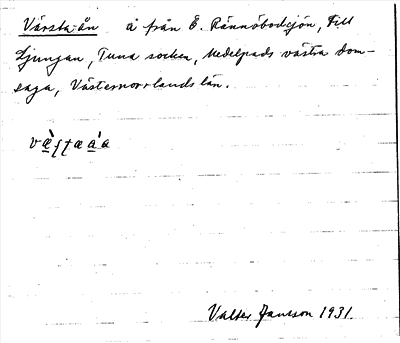 Värsta-ån å från Ö. Rännöbodsjön, till
Ljungan, Tuna socken, Medelpads västra dom-
saga, Västernorrlands län.
Valter Jansson 1931.